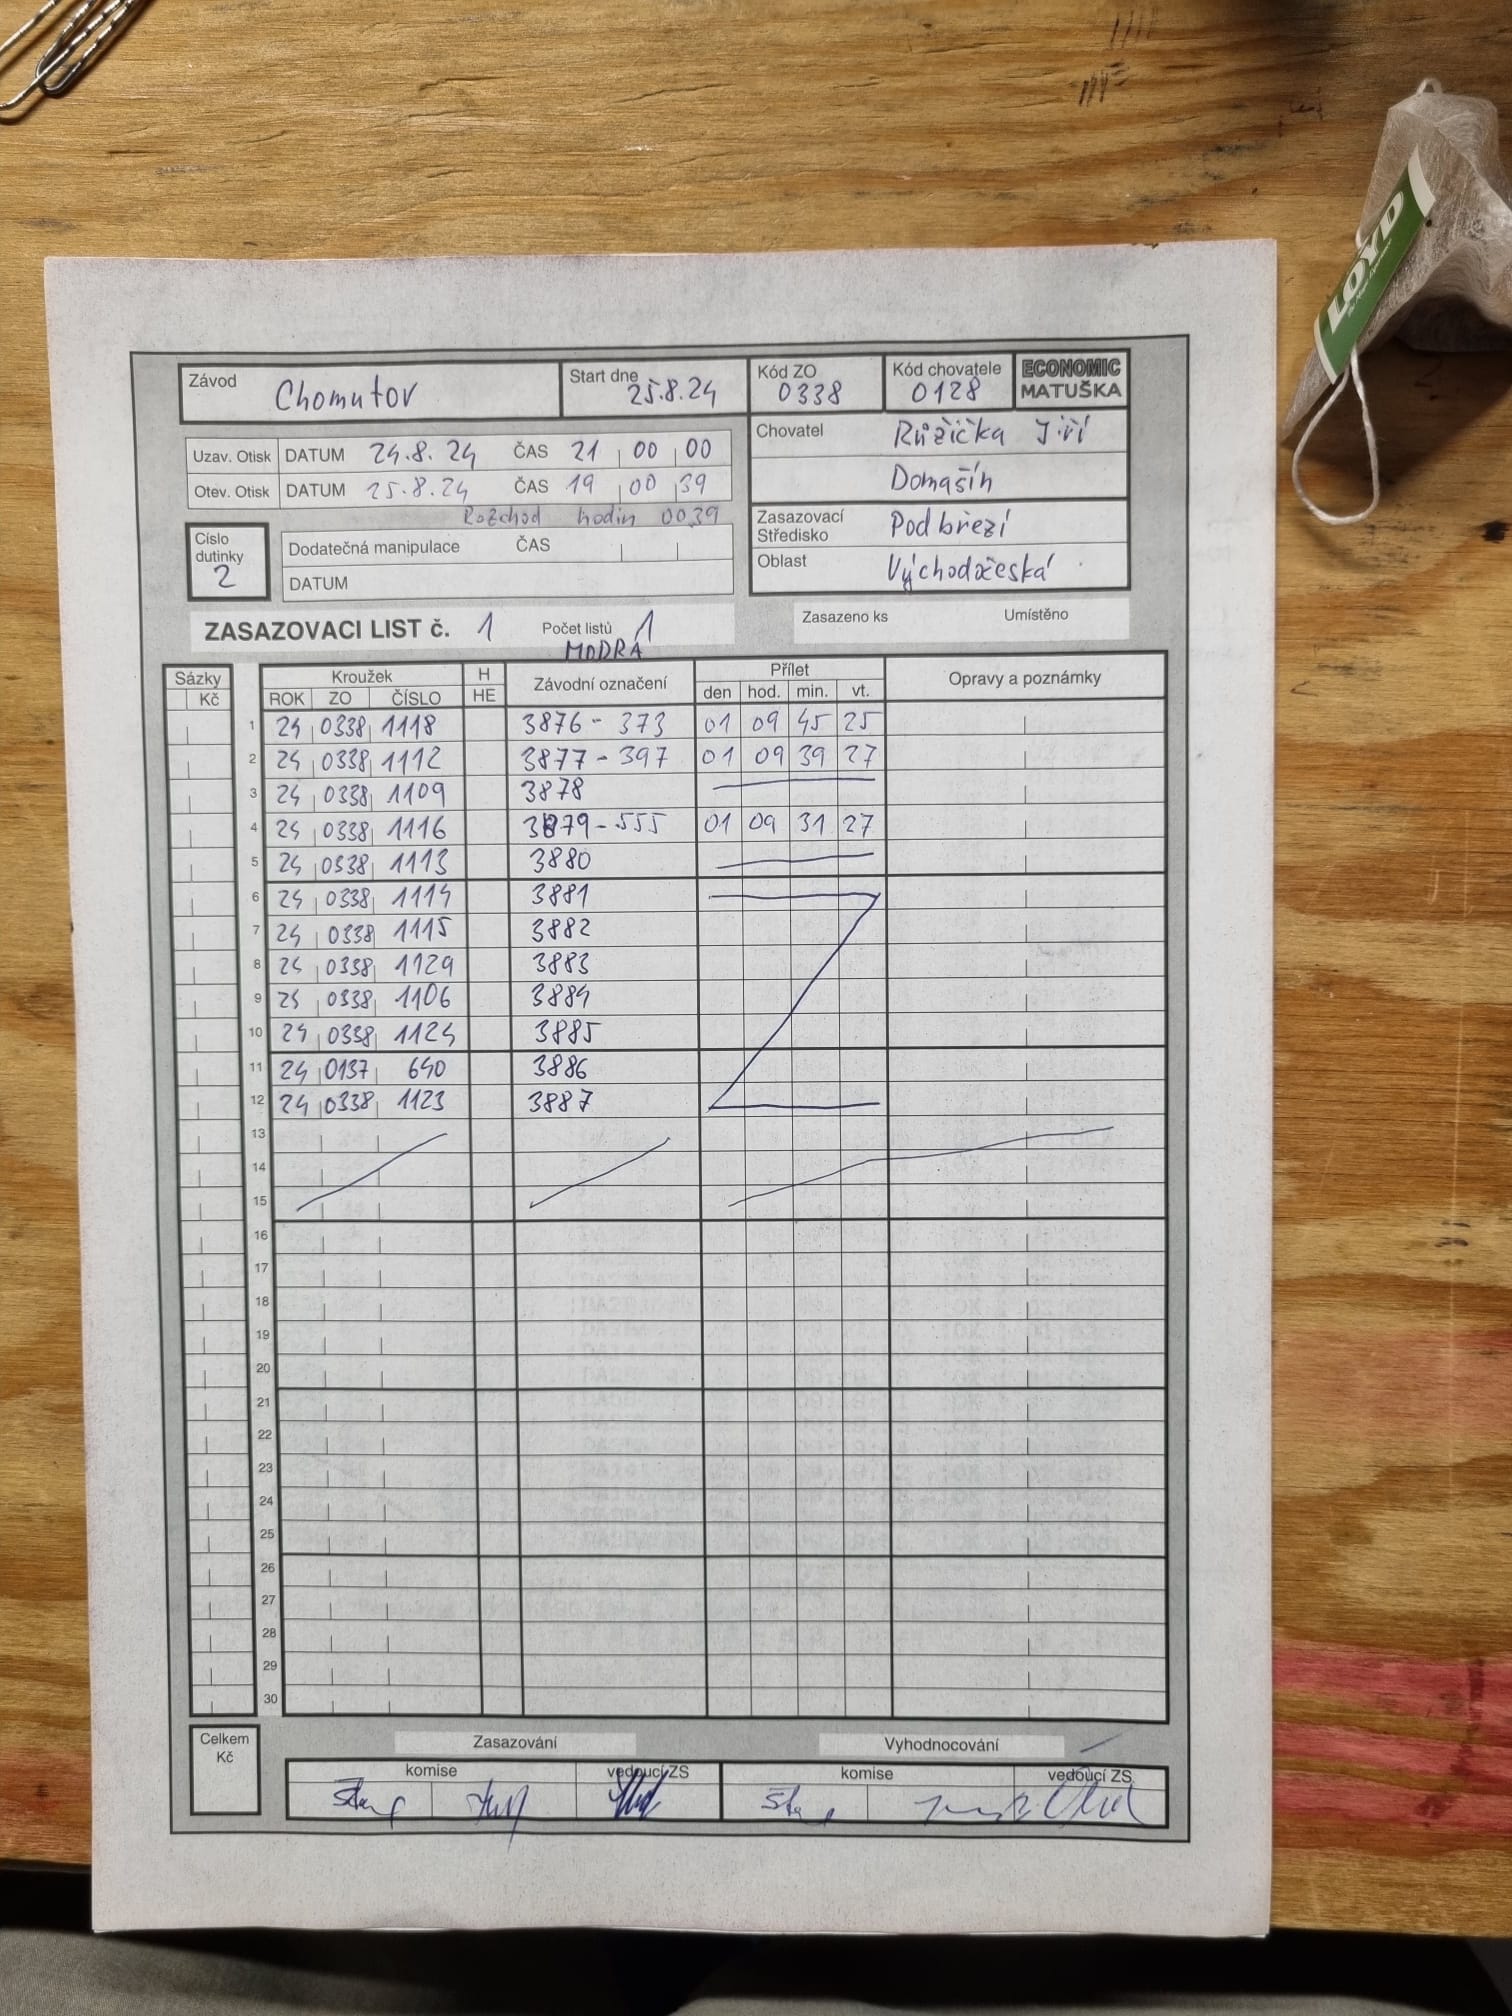 LOYD
Závod Chomutov Start dne 25.8.24 Kód ZO 0338 Kód chovatele 0128 ECONOMIC MATUŠKA
Uzav. Otisk DATUM 24.8.24 ČAS 21 00 00
Otev. Otisk DATUM 25.8.24 ČAS 19 00 39
Rozchod hodin 0039
Chovatel Růžička Jiří
Domašín
Zasazovací Středisko Podbřezí
Oblast Východočeská
Číslo dutinky 2
Dodatečná manipulace ČAS
DATUM
ZASAZOVACI LIST č. 1 Počet listů 1
MODRÁ
Zasazeno ks Umístěno
Sázky Kroužek H Závodní označení Přílet Opravy a poznámky
Kč ROK ZO ČÍSLO HE den hod. min. vt.
1 24 0338 1118 3876 - 373 01 09 45 25
2 24 0338 1112 3877 - 397 01 09 39 27
3 24 0338 1109 3878
4 24 0338 1116 3879 - 555 01 09 31 27
5 24 0338 1113 3880
6 24 0338 1114 3881
7 24 0338 1115 3882
8 24 0338 1129 3883
9 24 0338 1106 3884
10 24 0338 1124 3885
11 24 0137 640 3886
12 24 0338 1123 3887
13
14
15
16
17
18
19
20
21
22
23
24
25
26
27
28
29
30
Celkem Kč
Zasazování Vyhodnocování
komise vedoucí ZS komise vedoucí ZS